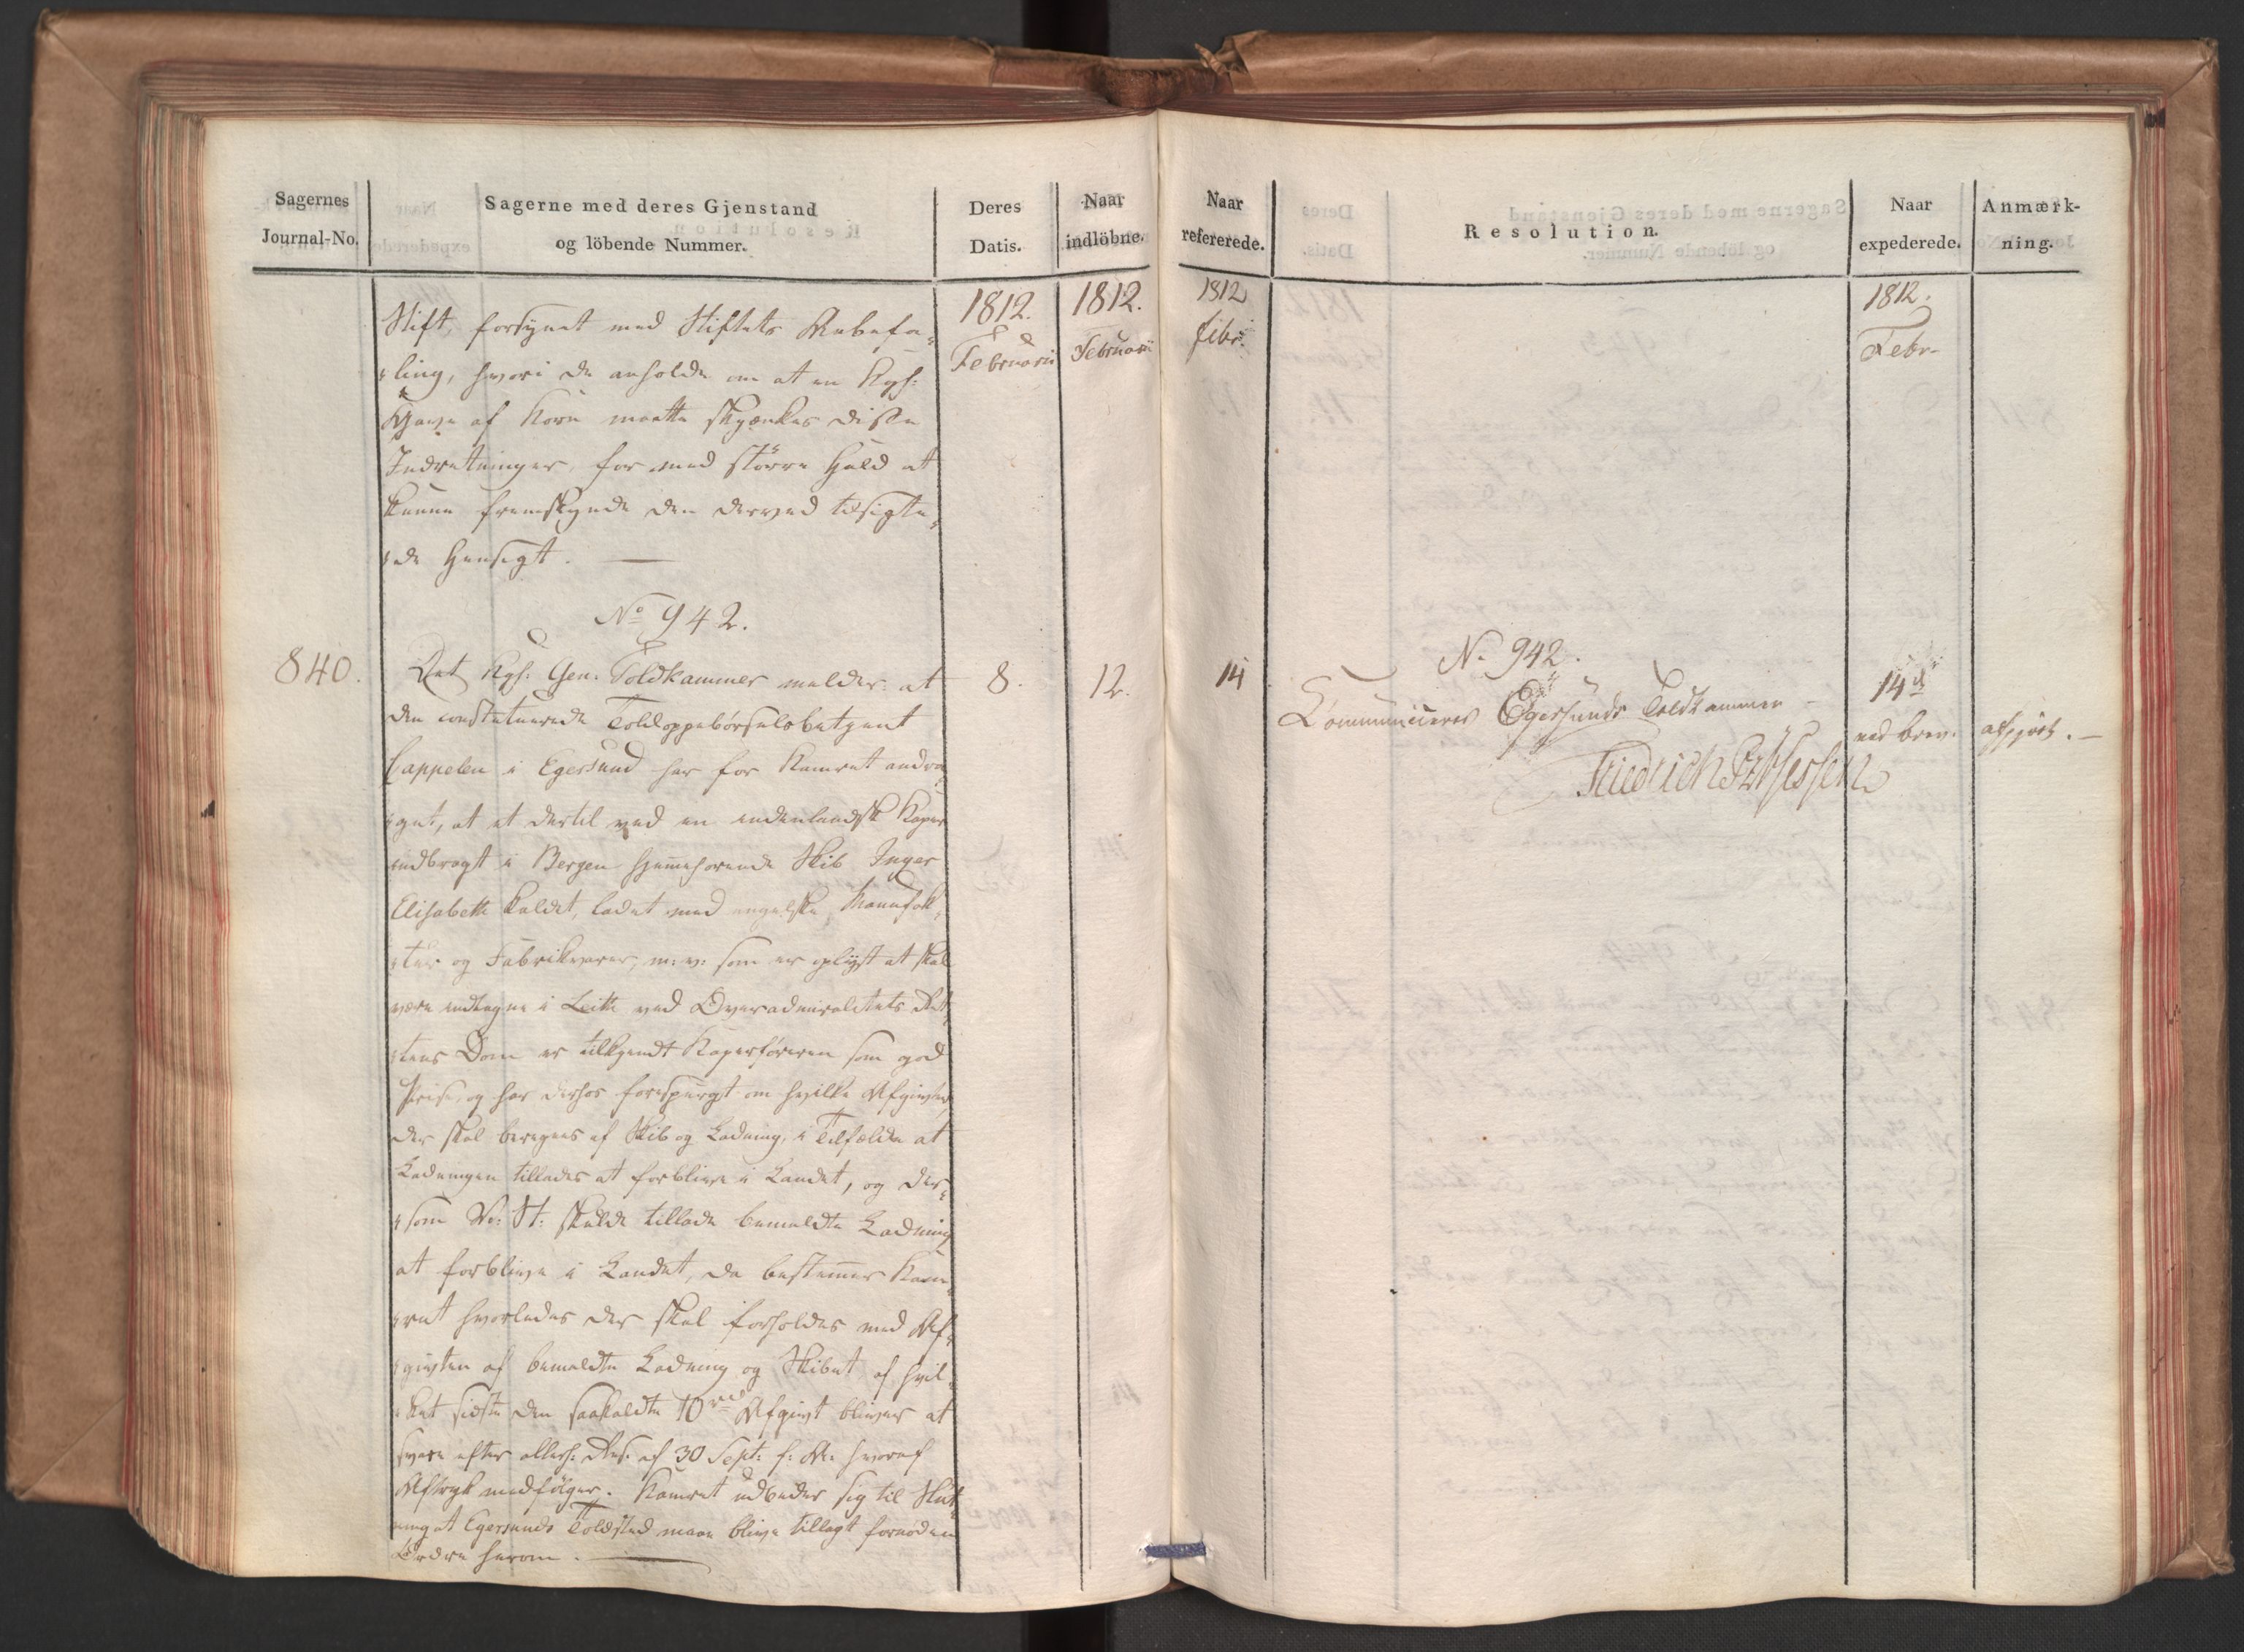 Sagernes
Journal-No.
Sagerne med deres Gjenstand
og löbende Nummer.
Deres
Datis.
Naar
indlöbne.
1812.
Februarii
1812.
Februarii
Stift, forsynet med Stiftets Anbefa-
ling, hvori de anholde om at en Kgh:
Gave af Korn maatte skjænkes disse
Indretninger, for med större Held at
kunne fremskynde den derved tilsigte-
de Hensigt.
No 942.
840.
Det Kgl: Gen: Toldkammer melder: at
8.
12.
den constituerede Toldoppebörselsbetjent
Cappelen i Egersund har for Kamret andra-
get, at et dertil ved en indenlandsk Kaper
indbragt i Bergen hjemmehörende Skib Inger
Elisabeth kaldet, ladet med engelske Manufak-
tur og Fabrikvarer, m: v: som er oplyst at skal
være indtagne i Leith ved Overadmiralitets Ret-
tens Dom er tilkjendt Kaperföreren som god
Prise, og har derhos forespurgt om hvilke Afgivter,
der skal beregnes af Skib og Ladning, i Tilfælde at
Ladningen tillades at forblive i Landet, og der-
som Vi: St: skulde tillade bemeldte Ladning
at forblive i Landet, da bestemmer Kam-
ret hvorledes der skal forholdes med Af-
givten af bemeldte Ladning og Skibet af hvil-
ket sidste den saakaldte 10de Afgivt bliver at
svare efter allerh: Res: af 30 Sept: f: A: hvoraf
Aftryk medfölger. Kamret udbeder sig til Slut-
ning at Egersunds Toldsted maae blive tillagt fornöden
Ordre herom.
Naar
refererede.
Resolution.
Naar
expederede.
Anmærk-
ning.
1812
Febr:
1812.
Febr.
No 942.
14
Communiceres Egersunds Toldkammer
14de
ved brev.
afgjört.
Friedrich PzHessen